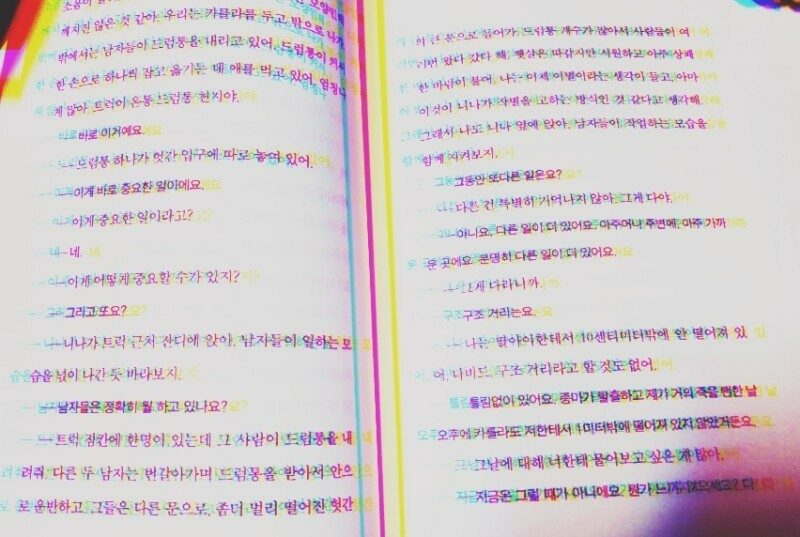 께지진 않은 것 같아. 우리는 카를라를 두고 밖으로 나가.
밖에서는 남자들이 드럼통을 내리고 있어. 드럼통이 커서
한 손으로 하나씩 잡고 옮기는 데 애를 먹고 있어. 엄청나
게 많아. 트럭이 온통 드럼통 천지야.
바로 이거예요.
드럼통 하나가 헛간 입구에 따로 놓여 있어.
이게 바로 중요한 일이에요.
이게 중요한 일이라고?
네.
이게 어떻게 중요할 수가 있지?
그리고 또요?
니나가 트럭 근처 잔디에 앉아. 남자들이 일하는 모
습을 넋이 나간 듯 바라보지.
남자들은 정확히 뭘 하고 있나요?
트럭 짐칸에 한명이 있는데 그 사람이 드럼통을 내
려줘. 다른 두 남자는 번갈아가며 드럼통을 받아서 안으
로 운반하고. 그들은 다른 문으로, 좀더 멀리 떨어진 헛간
의 큰 문으로 들어가. 드럼통 개수가 많아서 사람들이 여
러번 왔다 갔다 해. 햇살은 따갑지만 시원하고 아주 상쾌
한 바람이 불어. 나는 이제 이별이라는 생각이 들고, 아마
이것이 니나가 작별을 고하는 방식인 것 같다고 생각해.
그래서 나도 니나 옆에 앉아, 남자들이 작업하는 모습을
함께 지켜보지.
그동안 또다른 일은요?
다른 건 특별히 기억나지 않아. 그게 다야.
아니요, 다른 일이 더 있어요. 아주머니 주변에, 아주 가까
운 곳에요. 분명히 다른 일이 더 있어요.
그게 다라니까.
구조 거리는요.
나는 딸아이한테서 10센티미터밖에 안 떨어져 있
어, 다비드. 구조 거리라고 할 것도 없어.
틀림없이 있어요. 종마가 탈출하고 제가 거의 죽을 뻔한 날
오후에 카를라도 저한테서 1미터밖에 떨어져 있지 않았거든요.
그날에 대해 너한테 물어보고 싶은 게 많아.
지금은 그럴 때가 아니에요. 뭔가 느껴 않으세요? 다